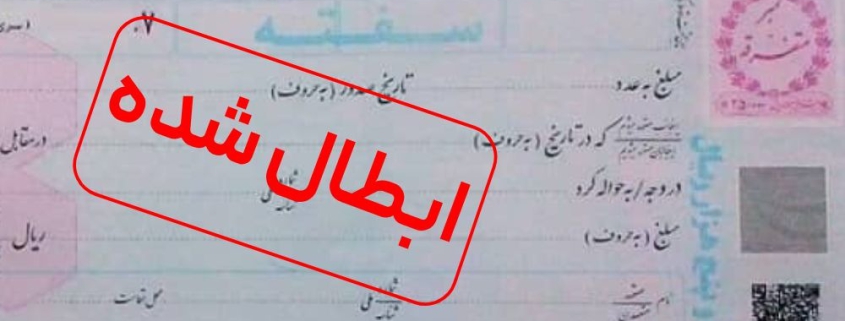 سفته
تمبر
متفرقه
مبلغ به عدد
تاریخ صدور (به حروف)
که در تاریخ (به حروف)
در مقابل
در وجه / به حواله کرد
شماره ملی
شناسه
مبلغ (به حروف)
ریال
نام متعهد
متعهدین
شماره ملی
شناسه
محل اقامت
ابطال شده